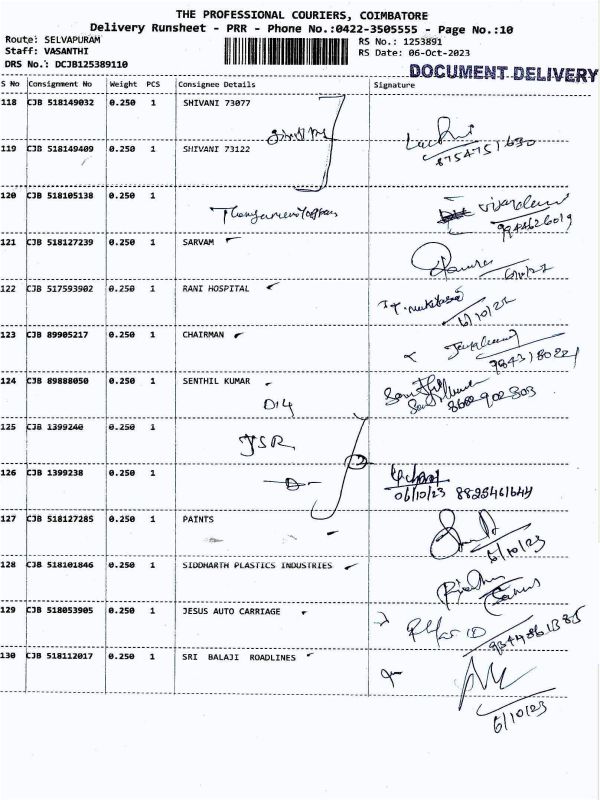 THE PROFESSIONAL COURIERS, COIMBATORE
Delivery Runsheet - PRR - Phone No.:0422-3505555 - Page No.:10
Route: SELVAPURAM
RS No.: 1253891
Staff: VASANTHI
RS Date: 06-Oct-2023
DRS No.: DCJB125389110
DOCUMENT DELIVERY
S No Consignment No Weight PCS Consignee Details Signature
118 CJB 518149032 0.250 1 SHIVANI 73077
119 CJB 518149409 0.250 1 SHIVANI 73122
8754751630
120 CJB 518105138 0.250 1
9944626019
121 CJB 518127239 0.250 1 SARVAM
122 CJB 517593902 0.250 1 RANI HOSPITAL
6/10/22
123 CJB 89905217 0.250 1 CHAIRMAN
124 CJB 89888050 0.250 1 SENTHIL KUMAR
D14
8682902303
125 CJB 1399240 0.250 1
JSR
126 CJB 1399238 0.250 1
06/10/23 8825461644
127 CJB 518127285 0.250 1 PAINTS
6/10/23
128 CJB 518101846 0.250 1 SIDDHARTH PLASTICS INDUSTRIES
129 CJB 518053905 0.250 1 JESUS AUTO CARRIAGE
130 CJB 518112017 0.250 1 SRI BALAJI ROADLINES
6/10/23